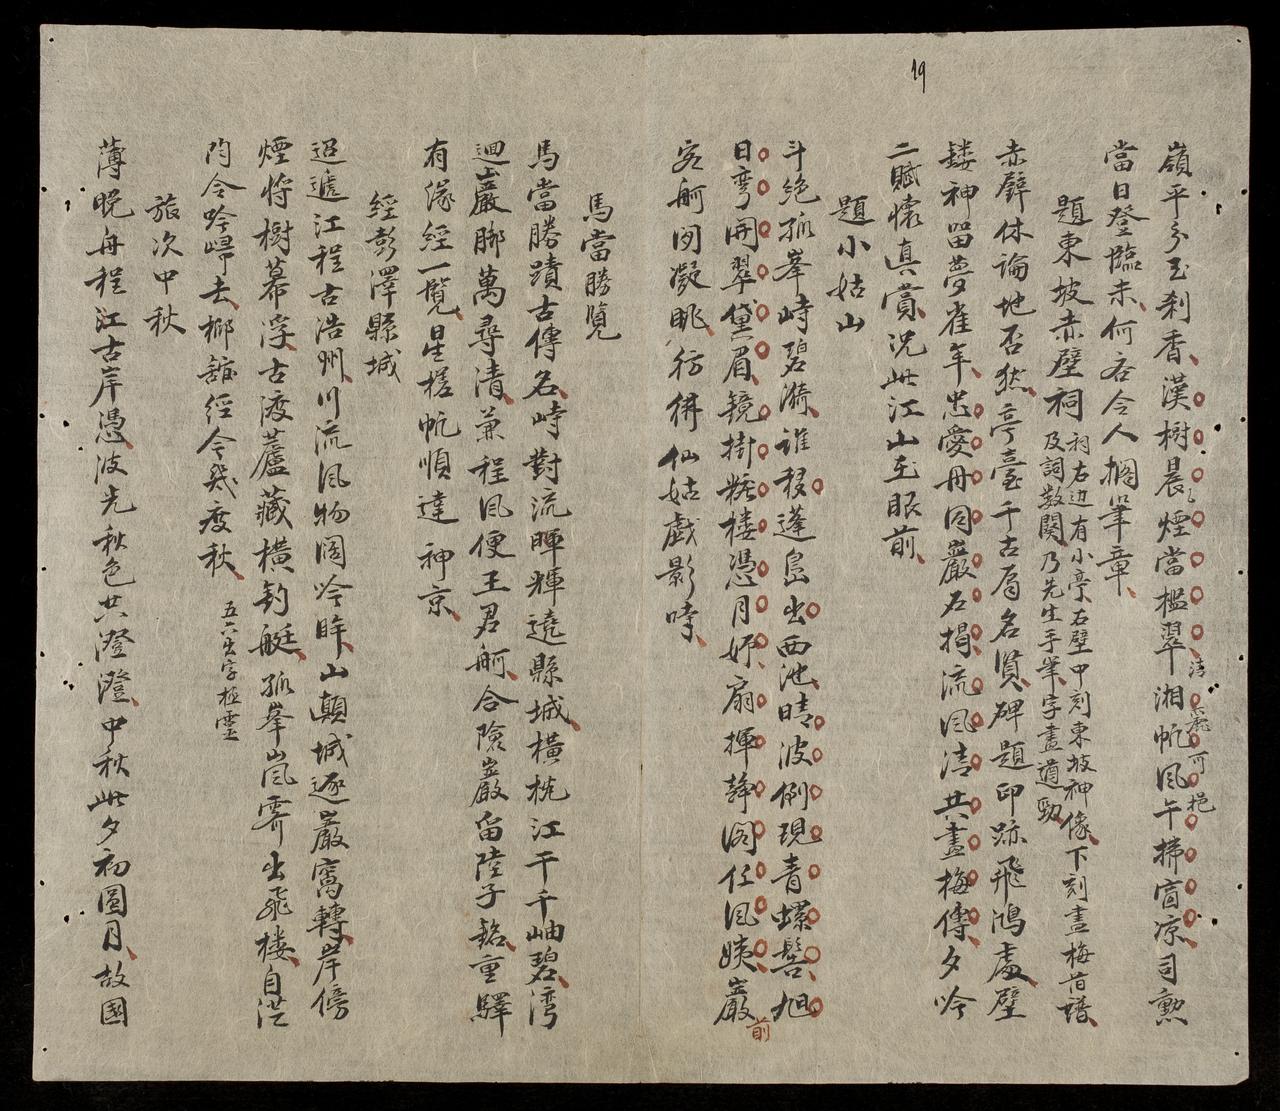 19
嶺平分玉刹香漢樹晨煙當檻翠湘帆風午拂窗凉司勲
清麗可挹
當日登臨未何吝令人擱筆章
題東坡赤壁祠
祠右边有小亭右壁中刻東坡神像下刻畫梅旹譜
及詞数闋乃先生手筆字畫遒勁
赤壁休論地否然亭臺千古屬名賢碑題印跡飛鴻處壁
鏤神留夢雀年忠愛丹同巖石揭流風清共畫梅傳夕吟
二賦懷真賞况此江山在眼前
題小姑山
斗絶孤峯峙碧漪誰移蓬島出西池晴波倒現青螺髻旭
日弯開翠黛眉鏡掛粧樓憑月妒扇揮静閣任風姨巖
前
客舸閑凝眺彷彿仙姑戯影時
馬當勝覧
馬當勝蹟古傳名峙對流暉輝遶縣城横枕江干千岫碧湾
迴巖脚萬尋清兼程風便王君舸合險巖留陸子銘重驛
有缘經一覽星槎帆順達神京
經彭澤縣城
迢遞江程古浩州川流風物阔吟眸山顛城逐巖窩轉岸傍
煙将樹幕浮古渡蘆藏横釣艇孤峯嵐霽出飛楼自從
陶令吟歸去柳舘經今幾度秋
五六出字極靈
旅次中秋
薄晚舟程江古岸憑波光秋色共澄澄中秋此夕初圓月故國